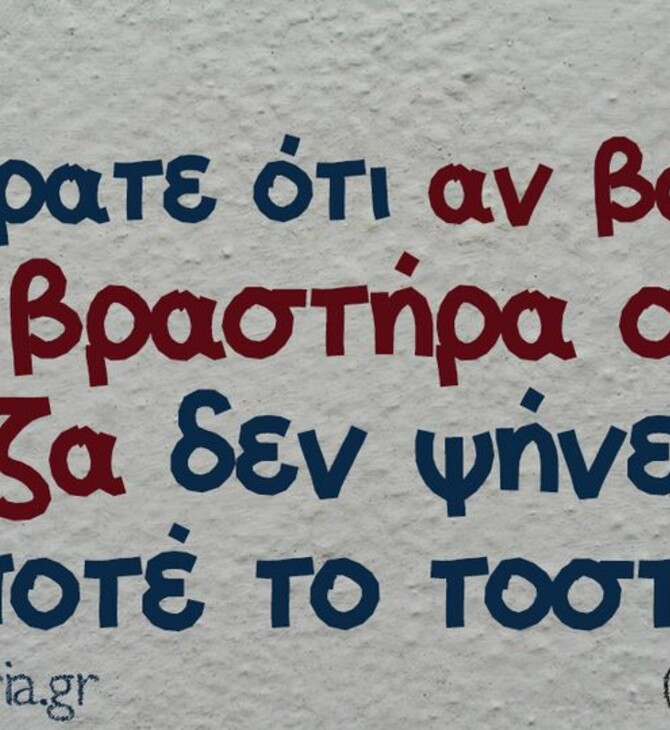 ρατε ότι αν βα
βραστήρα σ
ζα δεν ψήνε
ποτέ το τοστ
ria.gr